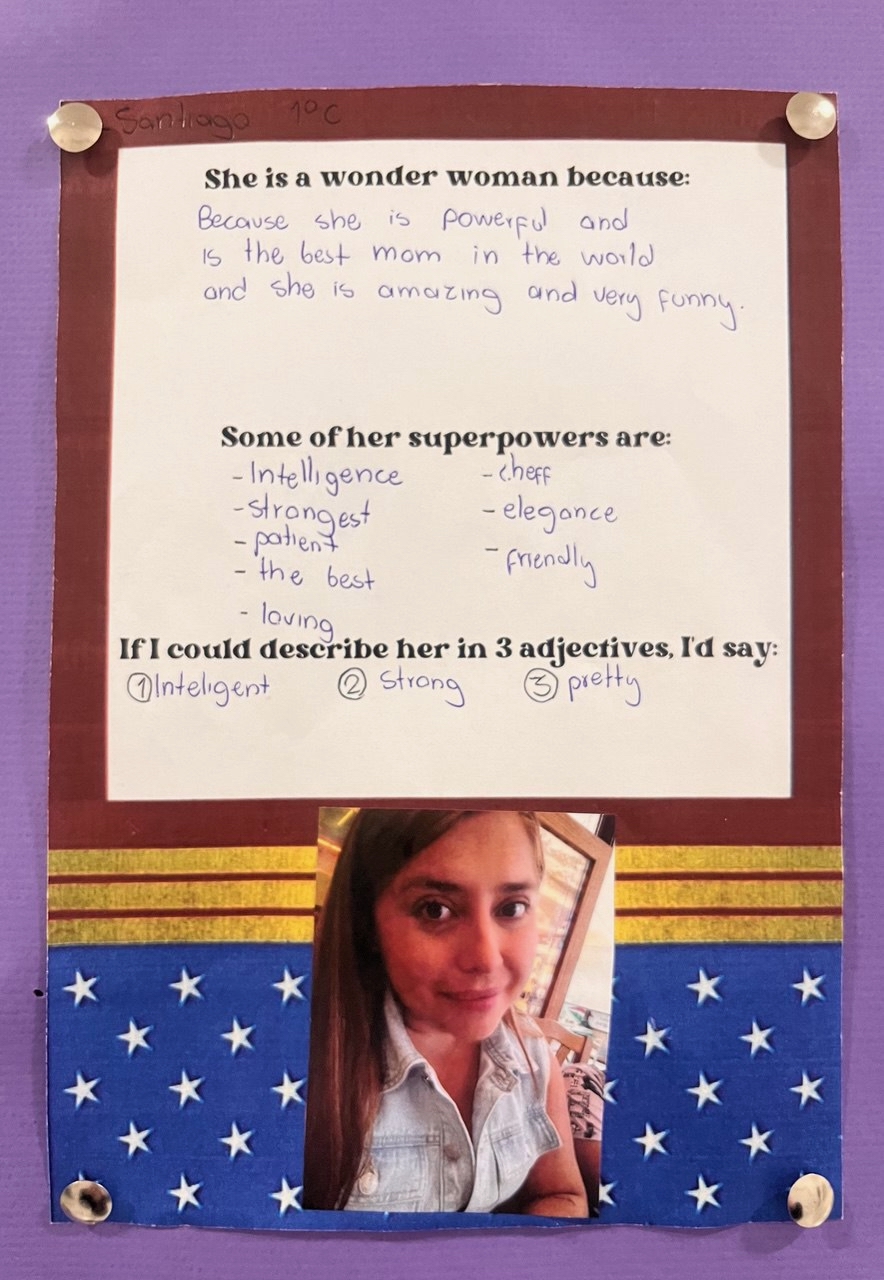 -Santiago 1°C
She is a wonder woman because:
Because she is powerful and
is the best mom in the world
and she is amazing and very funny.
Some of her superpowers are:
-Intelligence
-strongest
-patient
-the best
-loving
-cheff
-elegance
-friendly
If I could describe her in 3 adjectives, I'd say:
①Inteligent ② Strong ③ pretty